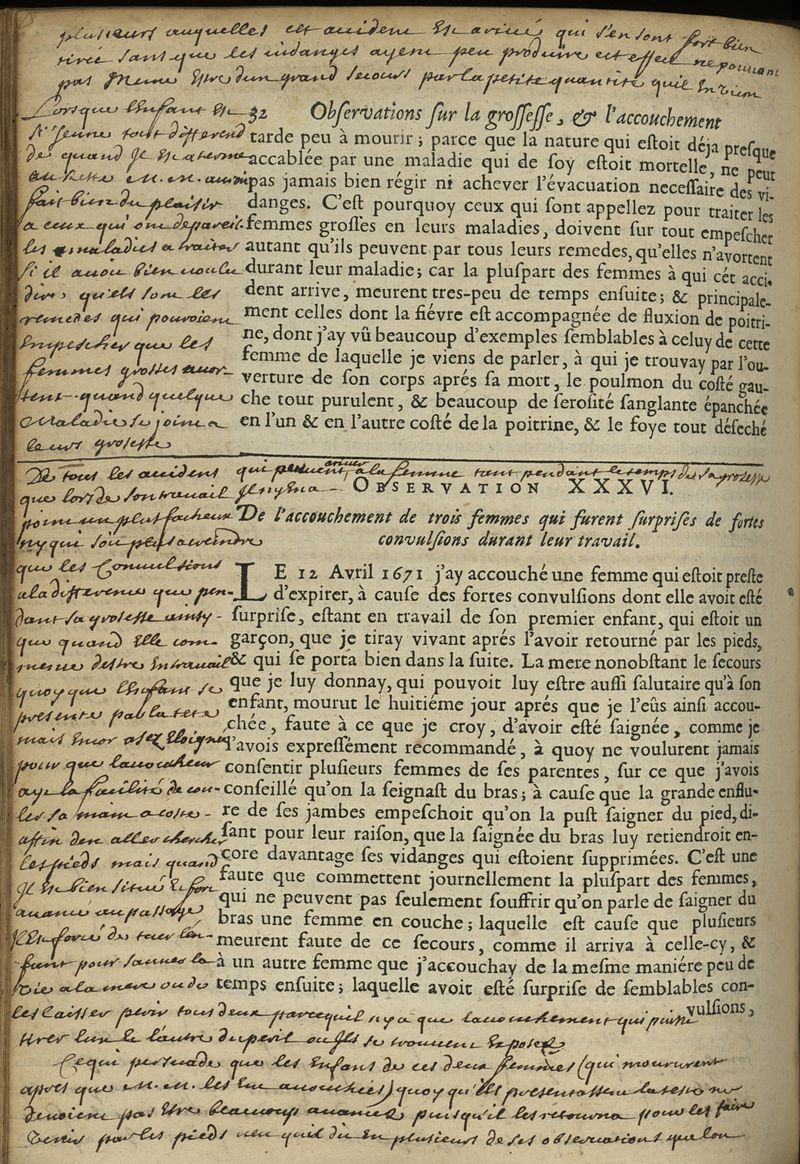 plusieurs auquelles cet accident est arivé qui s'en sont fort bien
tiréé sans que les vidanges ayent peu produire cet effect ne pouvant
pas meme estre d'un grand secours par la petite quantité qu'il en vient
32 Obſervations ſur la groſſeſſe, & l'accouchement
tarde peu à mourir; parce que la nature qui eſtoit déja preſque
accablée par une maladie qui de ſoy eſtoit mortelle, ne peut
pas jamais bien régir ni achever l'évacuation neceſſaire des vi-
danges. C'eſt pourquoy ceux qui ſont appellez pour traiter les
femmes groſſes en leurs maladies, doivent ſur tout empeſcher
autant qu'ils peuvent par tous leurs remedes, qu'elles n'avortent
durant leur maladie; car la pluſpart des femmes à qui cét acci-
dent arrive, meurent tres-peu de temps enſuite; & principale-
ment celles dont la fiévre eſt accompagnée de fluxion de poitri-
ne, dont j'ay vû beaucoup d'exemples ſemblables à celuy de cette
femme de laquelle je viens de parler, à qui je trouvay par l'ou-
verture de ſon corps aprés ſa mort, le poulmon du coſté gau-
che tout purulent, & beaucoup de ſeroſité ſanglante épanchée
en l'un & en l'autre coſté de la poitrine, & le foye tout déſeché
Lorsque l'Enfant est
si jeune tout different
de quand il est a terme
fait bien du plaisir
a ceux qui ont de pareil
les maladies a traiter
si il avoit bien voulu
dire quels sont les
remedes qui pouroient
empescher que les
femmes grosses avor-
tent quand quelque
maladie se joint a
leurs grosesse
De tous les accident qui peuvent ariver a la femme tant pendant le temps de sa grosesse
que lors de son travail il n'y en a
point un plus facheux
ny qui soit plus a craindre
que les Convulsions
a la difference que pen-
dant sa grosesse
que quand elle com-
mence destre en travail
quoy que l'Enfant se
presente par la tete
mais encor asez Eloigné
pour que lacoucheur
aye la facilité de cou-
ler sa main a coste
affin den aller chercher
les pieds mais quand
il est bien situé Et fort
avancé au passage
il est forcé de tirer l'en-
fant pour sauver la
vie a la mere ou de
les laisser perir tous deux parcequ'il n'y a que lacouchement qui puisse
tirer lun & lautre du peril ou ils se trouvent Exposez
OBSERVATION XXXVI.
De l'accouchement de trois femmes qui furent ſurpriſes de fortes
convulſions durant leur travail.
LE 12 Avril 1671 j'ay accouché une femme qui eſtoit preſte
d'expirer, à cauſe des fortes convulſions dont elle avoit eſté
ſurpriſe, eſtant en travail de ſon premier enfant, qui eſtoit un
garçon, que je tiray vivant aprés l'avoir retourné par les pieds,
& qui ſe porta bien dans la ſuite. La mere nonobſtant le ſecours
que je luy donnay, qui pouvoit luy eſtre auſſi ſalutaire qu'à ſon
enfant, mourut le huitiéme jour aprés que je l'eûs ainſi accou-
chée, faute à ce que je croy, d'avoir eſté ſaignée, comme je
l'avois expreſſément recommandé, à quoy ne voulurent jamais
conſentir pluſieurs femmes de ſes parentes, ſur ce que j'avois
conſeillé qu'on la ſeignaſt du bras; à cauſe que la grande enflu-
re de ſes jambes empeſchoit qu'on la puſt ſaigner du pied, di-
ſant pour leur raiſon, que la ſaignée du bras luy retiendroit en-
core davantage ſes vidanges qui eſtoient ſupprimées. C'eſt une
faute que commettent journellement la pluſpart des femmes,
qui ne peuvent pas ſeulement ſouffrir qu'on parle de ſaigner du
bras une femme en couche; laquelle eſt cauſe que pluſieurs
meurent faute de ce ſecours, comme il arriva à celle-cy, &
à un autre femme que j'accouchay de la meſme maniére peu de
temps enſuite; laquelle avoit eſté ſurpriſe de ſemblables con-
vulſions,
Ce qui persuade que les Enfans de ces deux femmes (qui moururent
apres que m. m. les eut acouchées) quoy qu'ils presentassent la teste ne
devoient pas Etre beaucoup avancez puisqu'il les retourna pour les faire
venir par les pieds veu quil dit en plusieurs de ses observations que lon